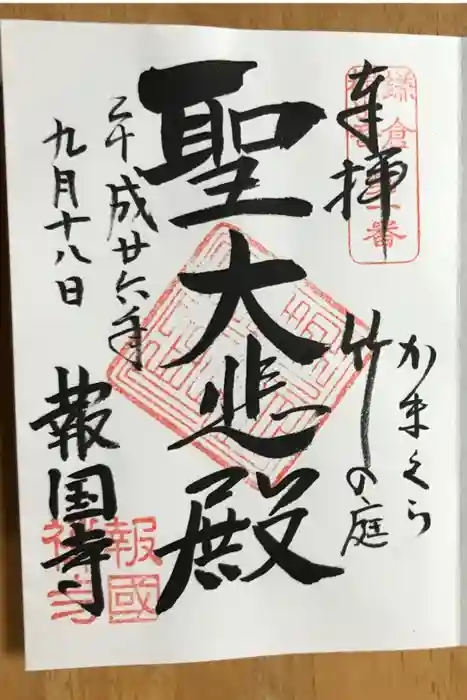 奉拝
かまくら
竹の庭
聖大悲殿
平成廿六年
九月十八日
報国寺
報國
禅寺